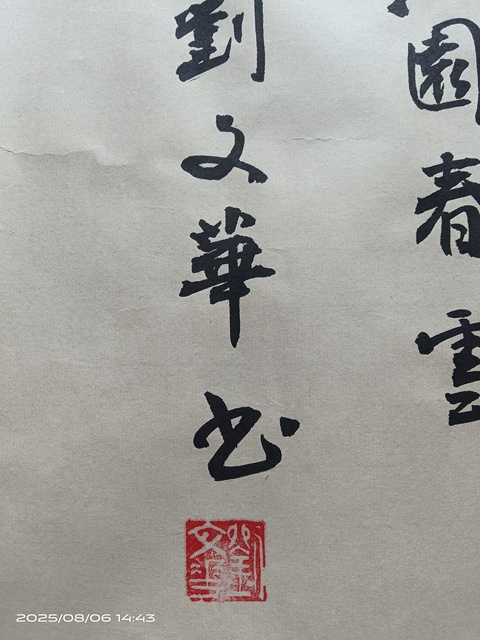 園春雪
劉文華书
劉文華
2025/08/06 14:43